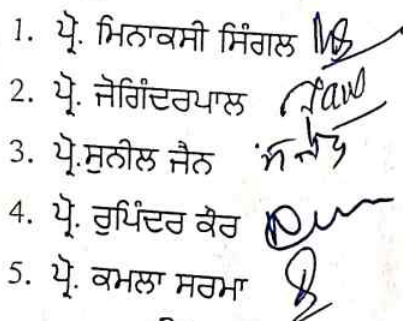 1. ਪ੍ਰੋ. ਮਿਨਾਕਸੀ ਸਿੰਗਲ
2. ਪ੍ਰੋ. ਜੋਗਿੰਦਰਪਾਲ
3. ਪ੍ਰੋ.ਸੁਨੀਲ ਜੈਨ
4. ਪ੍ਰੋ. ਰੁਪਿੰਦਰ ਕੌਰ
5. ਪ੍ਰੋ. ਕਮਲਾ ਸਰਮਾ